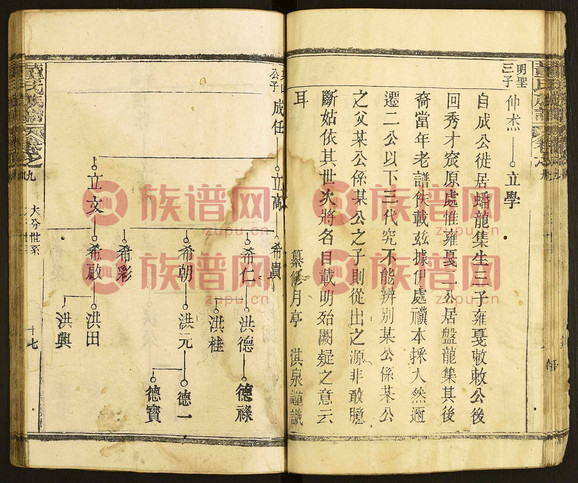 明聖
三子
仲杰
立學
自成公徙居蟠龍集生三子雍戞
公後
回秀才
原處惟雍戞二公居盤龍集其後
裔當年老譜失載玆據伊處
本採入然邇
遷二公以下三代究不能辨別某公係某公
之父某公係某公之子則從出之源非敢臆
斷姑依其世次將名目載明殆闕疑之意云
耳
纂修月亭
淇泉謹識
公子
成任
立高
希貴
希仁
洪德
德祿
洪桂
希朝
洪元
德一
德寶
希彩
立文
希啟
洪田
洪興
卷之九
大分世系
十七
族谱网
zupu.cn
族谱网
zupu.cn
族谱网
zupu.cn
族谱网
zupu.cn